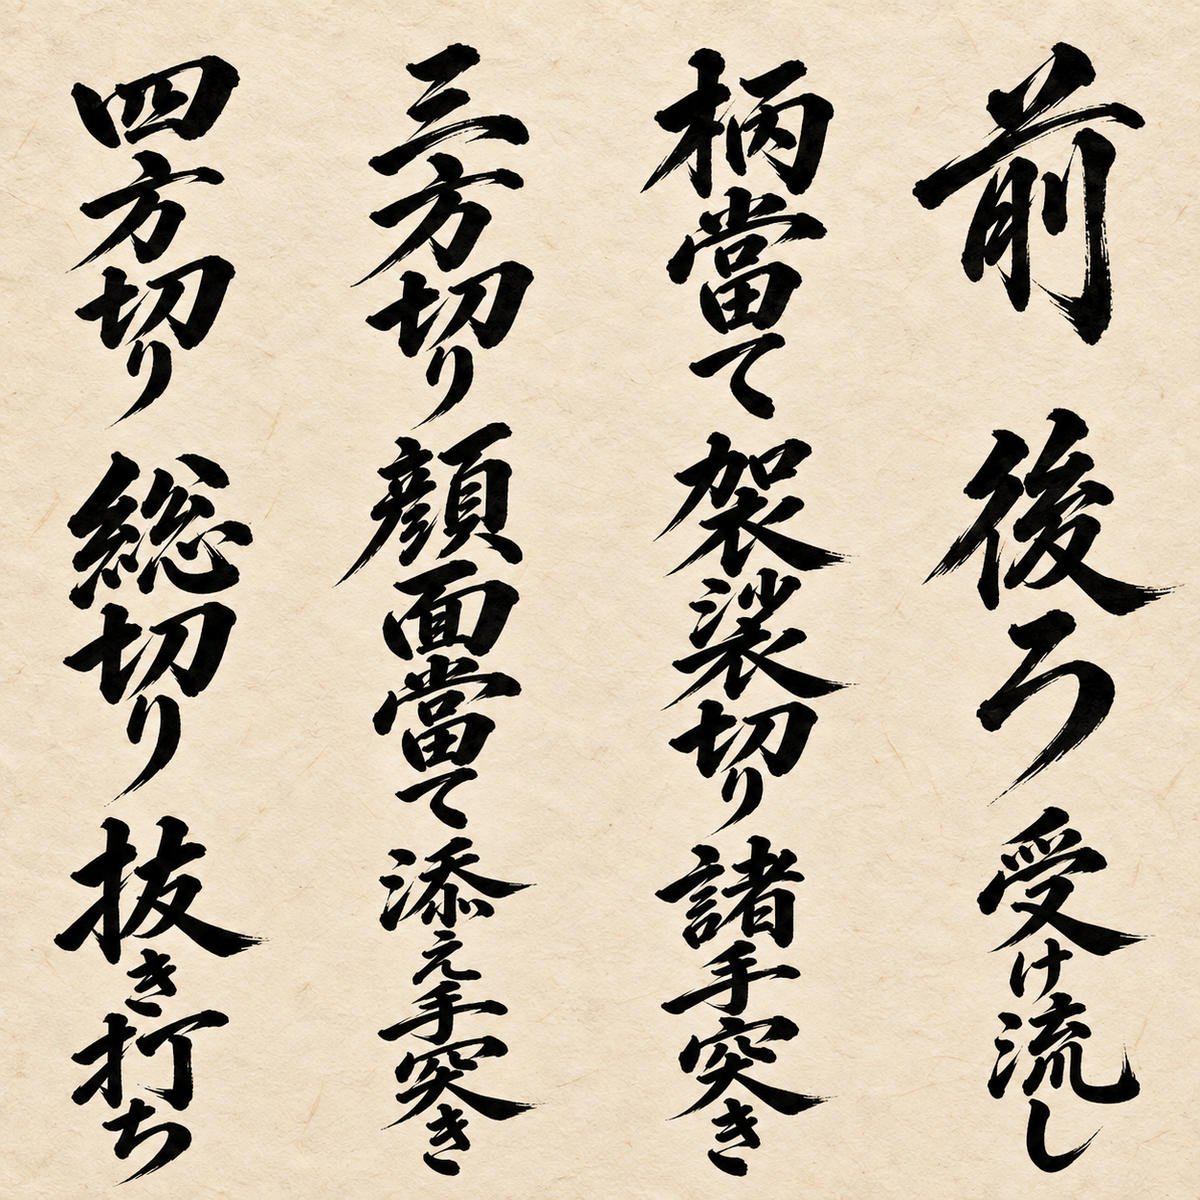 前
後ろ
受け流し
柄當て
袈裟切り
諸手突き
三方切り
顔面當て
添え手突き
四方切り
総切り
抜き打ち